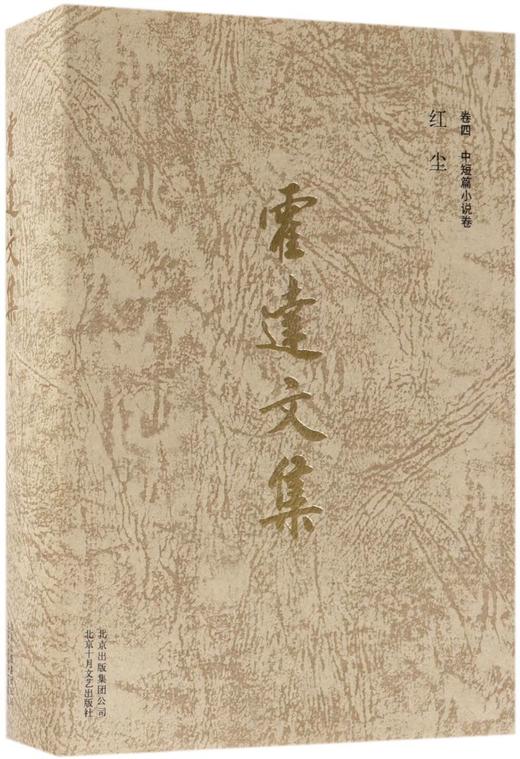 卷四 中短篇小说卷
红尘
霍達文集
北京出版集团公司
北京十月文艺出版社